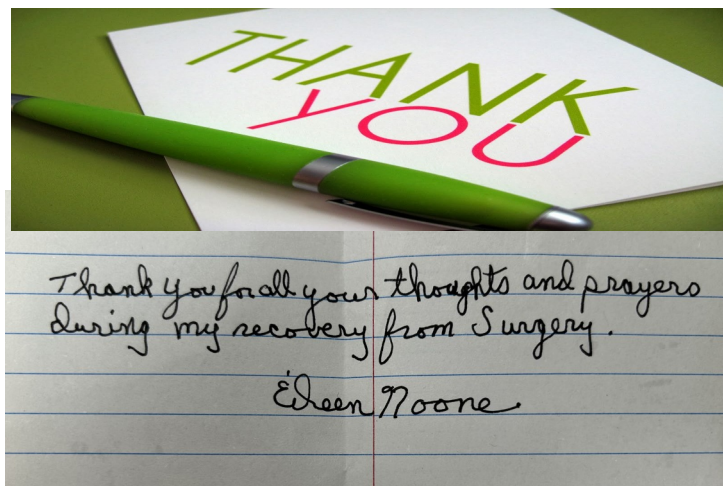 THANK
YOU
Thank you for all your thoughts and prayers
during my recovery from Surgery.
Eileen Noone